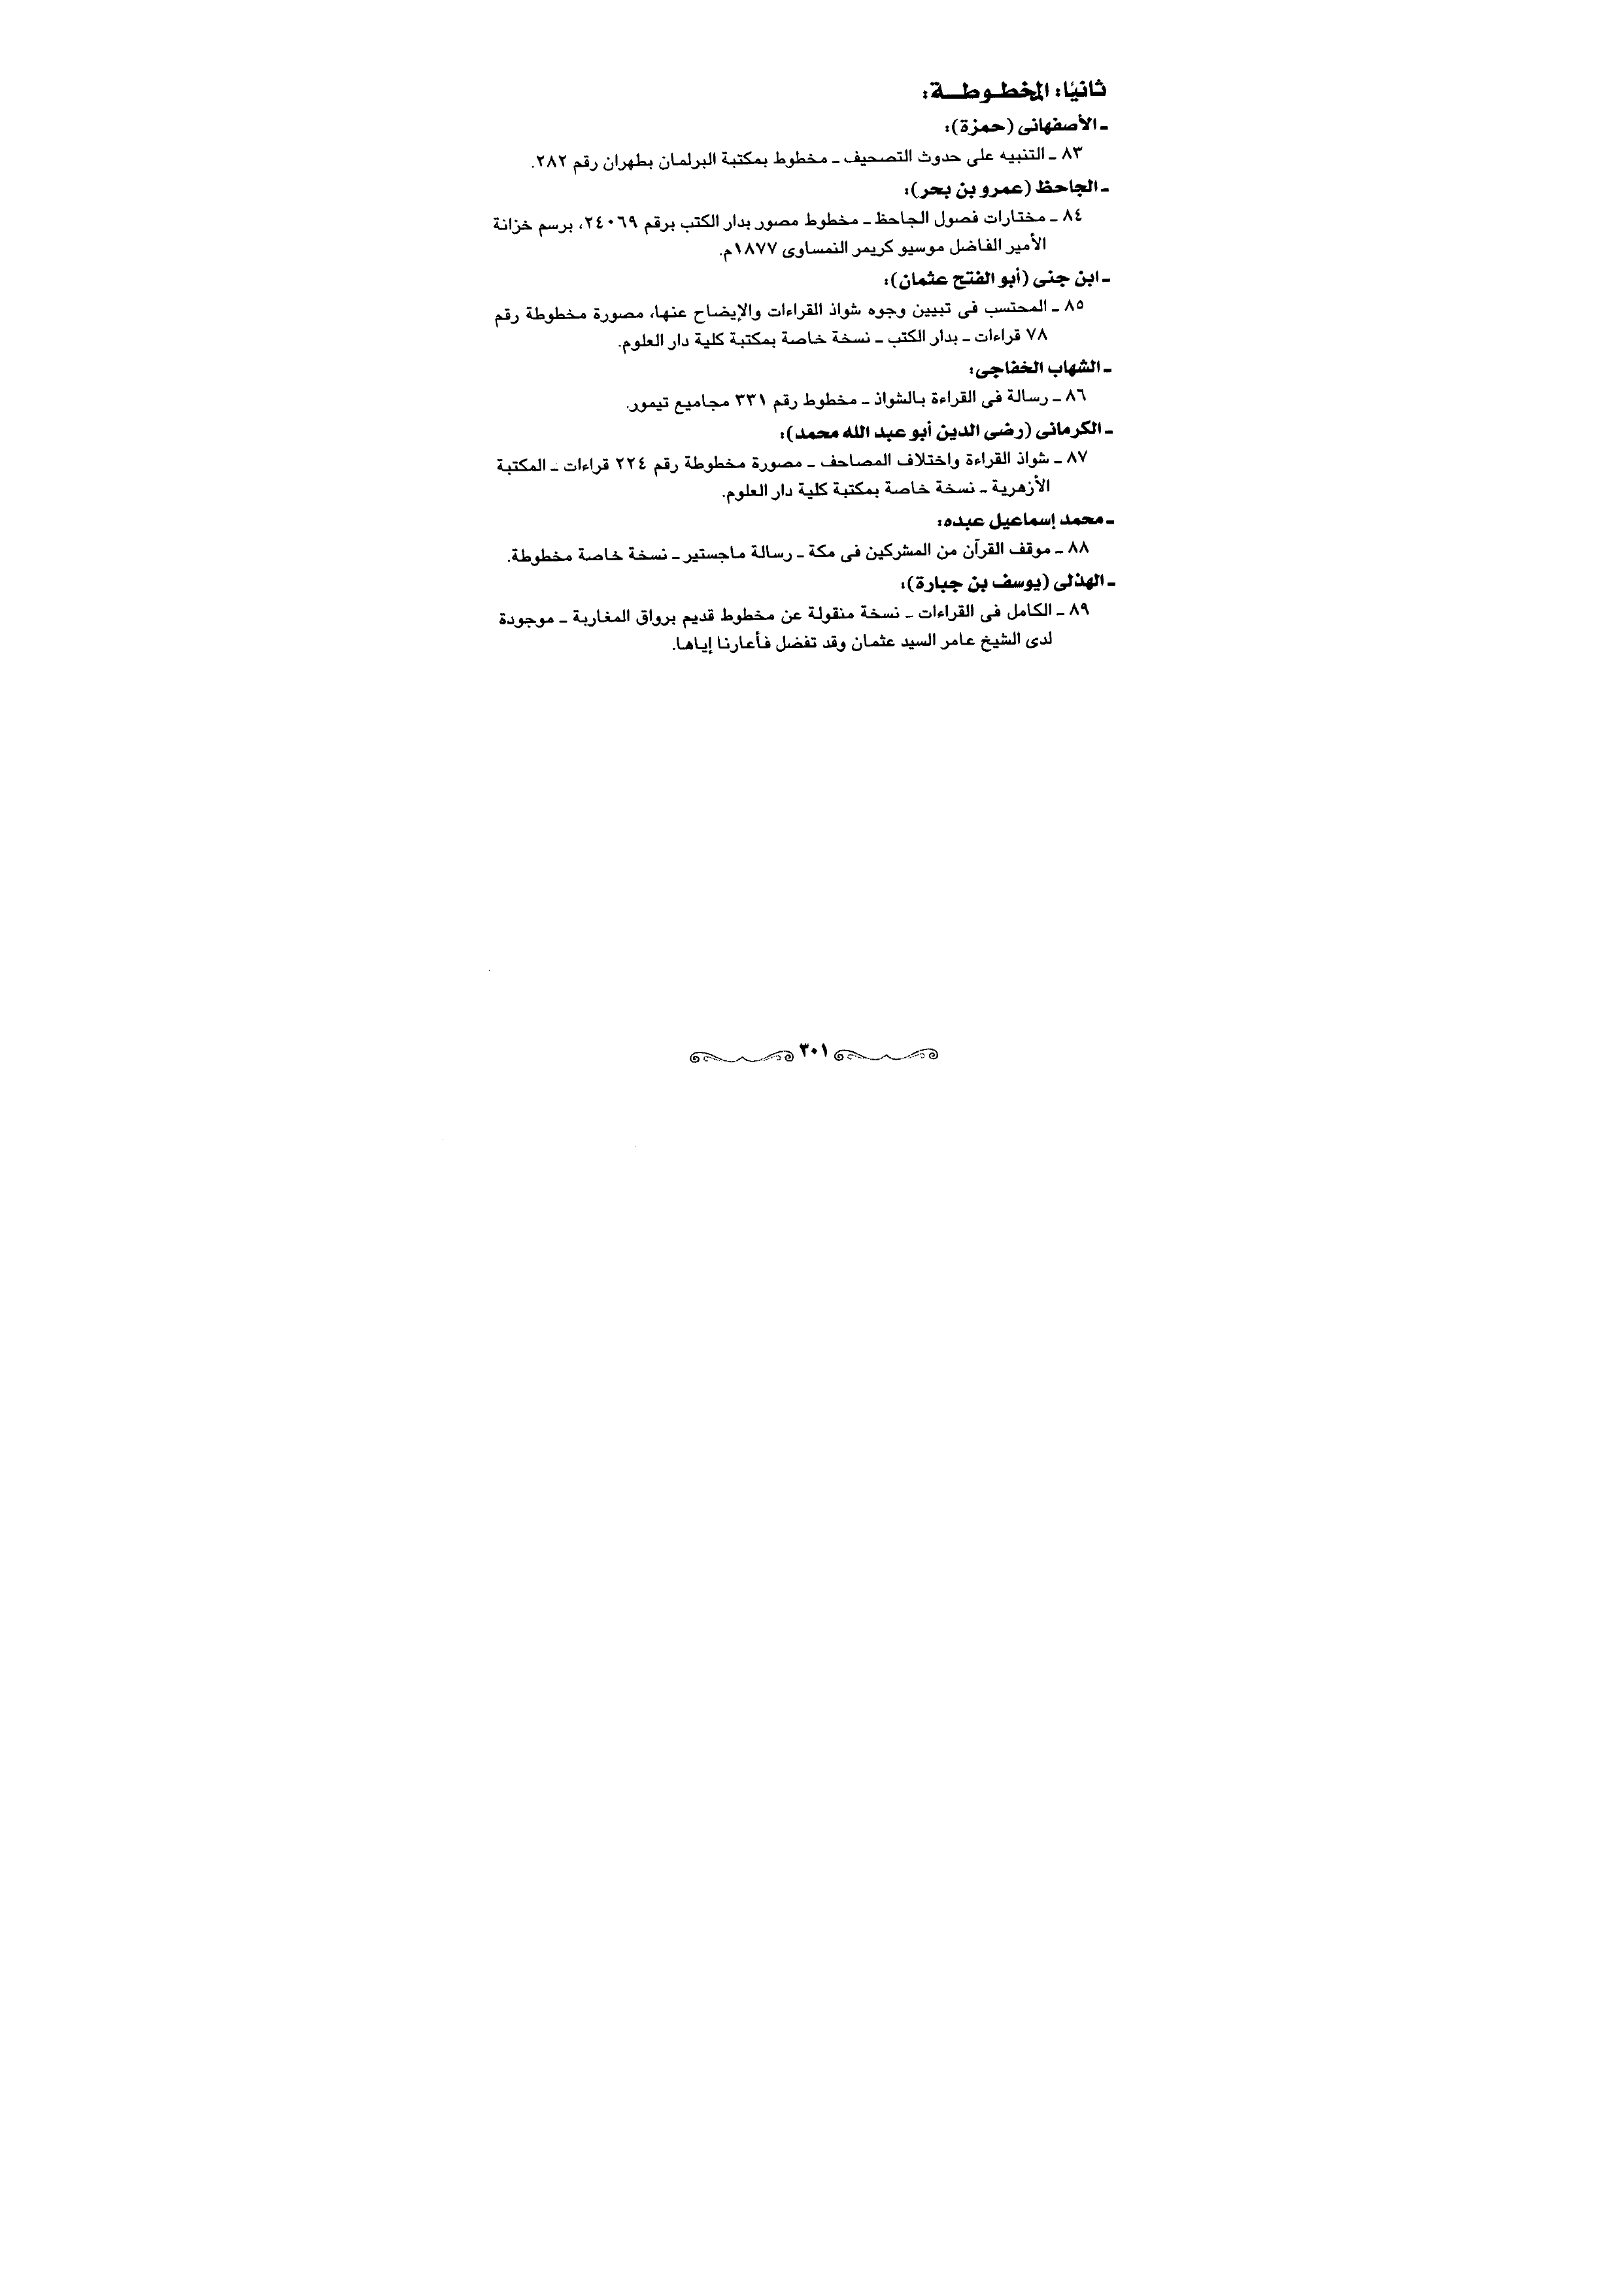 ثانيًا: المخطوطة:
ـ الأصفهانى (حمزة):
٨٣ ـ التنبيه على حدوث التصحيف ـ مخطوط بمكتبة البرلمان بطهران رقم ٢٨٢.
ـ الجاحظ (عمرو بن بحر):
٨٤ ـ مختارات فصول الجاحظ ـ مخطوط مصور بدار الكتب برقم ٢٤٠٦٩، برسم خزانة
الأمير الفاضل موسيو كريمر النمساوى ١٨٧٧م.
ـ ابن جنى (أبو الفتح عثمان):
٨٥ ـ المحتسب فى تبيين وجوه شواذ القراءات والإيضاح عنها، مصورة مخطوطة رقم
٧٨ قراءات ـ بدار الكتب ـ نسخة خاصة بمكتبة كلية دار العلوم.
ـ الشهاب الخفاجى:
٨٦ ـ رسالة فى القراءة بالشواذ ـ مخطوط رقم ٣٣١ مجاميع تيمور.
ـ الكرمانى (رضى الدين أبو عبد الله محمد):
٨٧ ـ شواذ القراءة واختلاف المصاحف ـ مصورة مخطوطة رقم ٢٢٤ قراءات ـ المكتبة
الأزهرية ـ نسخة خاصة بمكتبة كلية دار العلوم.
ـ محمد إسماعيل عبده:
٨٨ ـ موقف القرآن من المشركين فى مكة ـ رسالة ماجستير ـ نسخة خاصة مخطوطة.
ـ الهذلى (يوسف بن جبارة):
٨٩ ـ الكامل فى القراءات ـ نسخة منقولة عن مخطوط قديم برواق المغاربة ـ موجودة
لدى الشيخ عامر السيد عثمان وقد تفضل فأعارنا إياها.
٣٠١